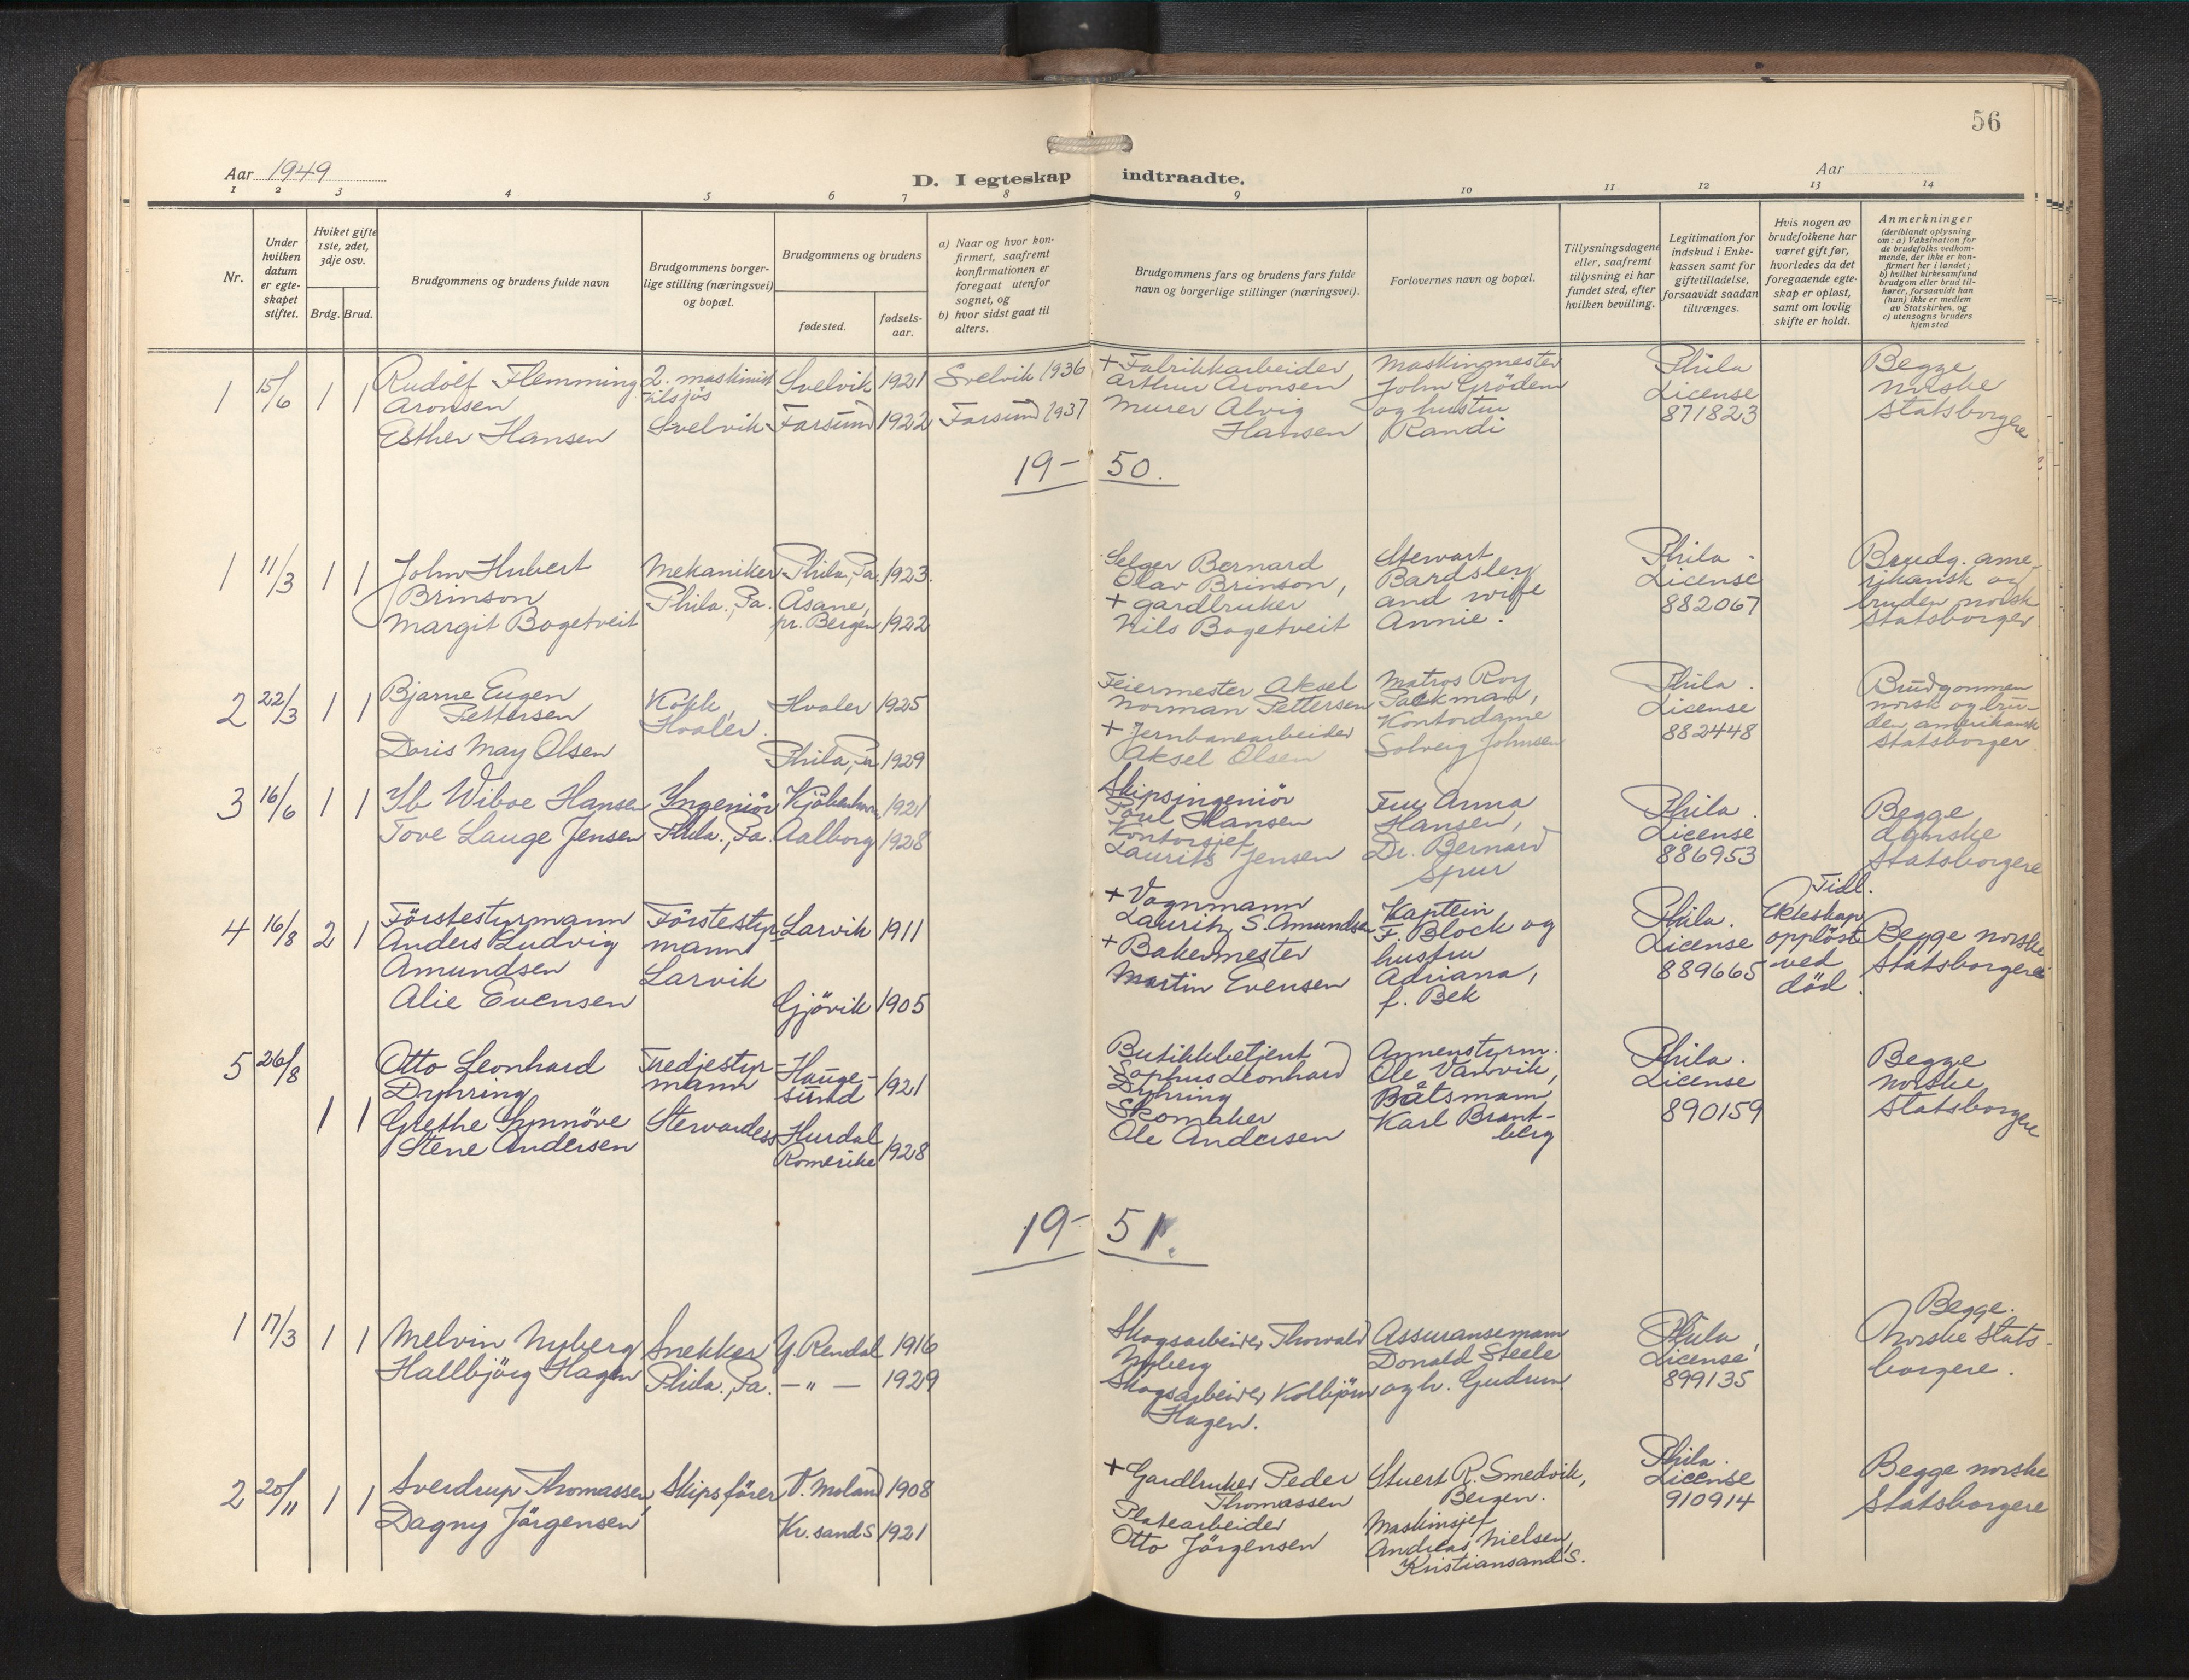 56
Aar 1949
D. I egteskap indtraadte.
Aar
1 2 3 4 5 6 7 8 9 10 11 12 13 14
Nr.
Under
hvilken
datum
er egte-
skapet
stiftet.
Hviket gifte
1ste, 2det,
3dje osv.
Brdg. Brud.
Brudgommens og brudens fulde navn
Brudgommens borger-
lige stilling (næringsvei)
og bopæl.
Brudgommens og brudens
fødested.
fødsels-
aar.
a) Naar og hvor kon-
firmert, saafremt
konfirmationen er
foregaat utenfor
sognet, og
b) hvor sidst gaat til
alters.
Brudgommens fars og brudens fars fulde
navn og borgerlige stillinger (næringsvei).
Forlovernes navn og bopæl.
Tillysningsdagene
eller, saafremt
tillysning ei har
fundet sted, efter
hvilken bevilling.
Legitimation for
indskud i Enke-
kassen samt for
giftetilladelse,
forsaavidt saadan
tiltrænges.
Hvis nogen av
brudefolkene har
været gift før,
hvorledes da det
foregaaende egte-
skap er opløst,
samt om lovlig
skifte er holdt.
Anmerkninger
(deriblandt oplysning
om: a) Vaksination for
de brudefolks vedkom-
mende, der ikke er kon-
firmert her i landet;
b) hvilket kirkesamfund
brudgom eller brud til-
hører, forsaavidt han
(hun) ikke er medlem
av Statskirken, og
c) utensogns bruders
hjemsted
1 15/6 1 1
Rudolf Flemming
Aronsen
Esther Hansen
2. maskinist
tilsjøs
Svelvik
Svelvik 1921
Farsund 1922
Svelvik 1936
Farsund 1937
+ Fabrikkarbeider
Arthur Aronsen
Murer Alvig
Hansen
Maskinmester
John Grödem
og hustru
Randi
Phila
License
871823
Begge
norske
Statsborgere
19-50.
1 11/3 1 1
John Hubert
Brinson
Margit Bogetveit
Mekaniker
Phila., Pa.
Phila., Pa. 1923.
Åsane,
pr. Bergen 1922
Selger Bernard
Olav Brinson,
+ gardbruker
Nils Bogetveit
Stewart
Bardsley
and wife
Annie.
Phila.
License
882067
Brudg. ame-
rikansk og
bruden norsk
Statsborger
2 22/3 1 1
Bjarne Eugen
Pettersen
Doris May Olsen
Kokk,
Hvaler.
Hvaler 1925
Phila, Pa 1929
Feiermester Aksel
Norman Pettersen
+ Jernbanearbeider
Aksel Olsen
Matros Roy
Packman,
Kontordame
Solveig Johnsen
Phila.
License
882448
Brudgommen
norsk og bru-
den amerikansk
Statsborger
3 16/6 1 1
Ib Wiboe Hansen
Tove Lauge Jensen
Ingeniör
Phila., Pa.
Kjöbenhavn 1921
Aalborg 1928
Skipsingeniör
Poul Hansen
Kontorsjef
Laurits Jensen
Fru Anna
Hansen,
Dr. Bernard
Spur
Phila.
License
886953
Begge
danske
Statsborgere
4 16/8 2 1
Förstestyrmann
Anders Ludvig
Amundsen
Alie Evensen
Förstestyr-
mann
Larvik
Larvik 1911
Gjövik 1905
+ Vognmann
Laurits S. Amundsen
+ Bakermester
Martin Evensen
Kaptein
F. Block og
hustru
Adriana,
f. Bek
Phila.
License
889665
Tidl.
Ekteskap
opplöst
ved
död.
Begge norske
Statsborgere
5 26/8 1 1
Otto Leonhard
Dyhring
Grethe Synnöve
Stene Andersen
Tredjestyr-
mann
Stewardess
Hauge-
sund 1921
Hurdal
Romerike 1928
Butikkbetjent
Sophus Leonhard
Dyhring
Skomaker
Ole Andersen
Annenstyrm.
Ole Vannvik,
Båtsmann
Karl Brant-
berg
Phila.
License
890159
Begge
norske
Statsborgere
19-51.
1 17/3 1 1
Melvin Nyberg
Hallbjörg Hagen
Snekker
Phila., Pa.
Y. Rendal 1916
— " — 1929
Skogsarbeider Thorvald
Nyberg
Skogsarbeider Kolbjörn
Hagen.
Assuransemann
Donald Steele
og h. Gudrun
Phila,
License
899135
Begge.
Norske Stats-
borgere.
2 20/11 1 1
Sverdrup Thomassen
Dagny Jörgensen
Skipsförer
V. Moland 1908
Kr.sand S 1921
+ Gardbruker Peder
Thomassen
Platearbeider
Otto Jörgensen
Stuert R. Smedvik,
Bergen.
Maskinsjef
Andreas Nielsen,
Kristiansand S.
Phila.
License
910914
Begge norske
Statsborgere